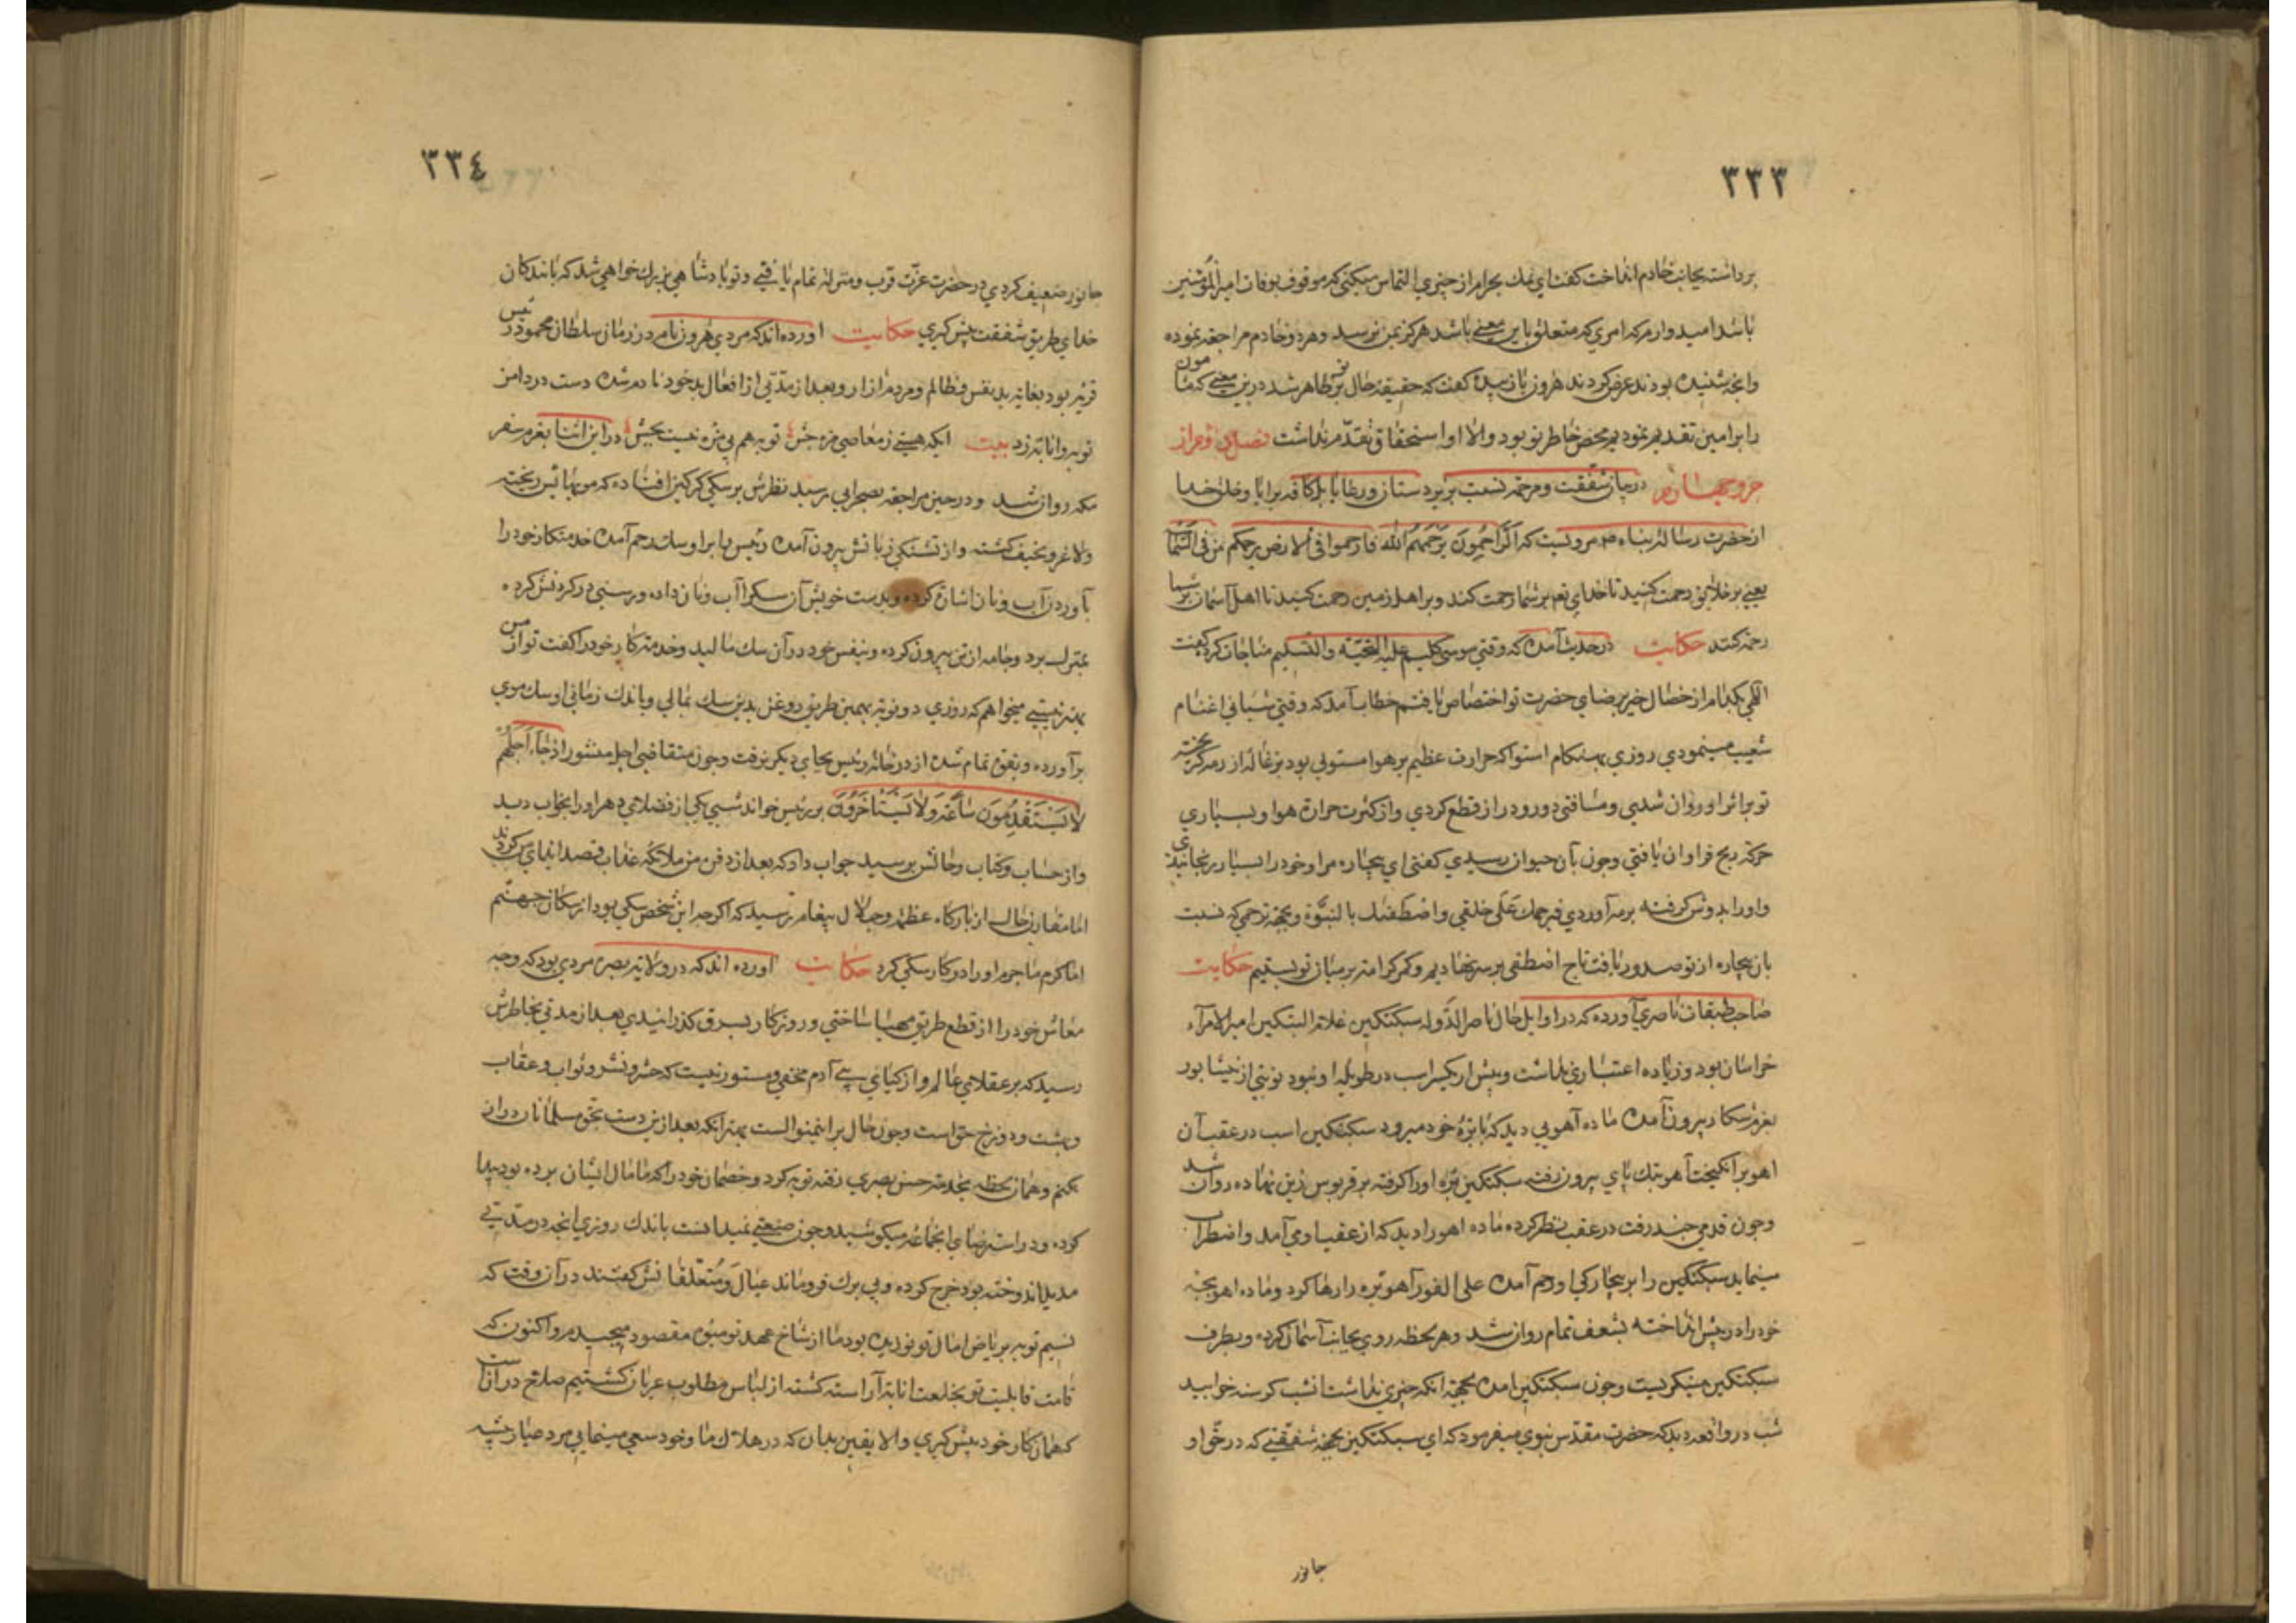 ٣٣٣
برداشته بجانب خادم انداخت کفت ای نمک بحرام از چیزی التماس میکنی که موقوف بوفات امیرالمؤمنین
باشد امیدوارم که امری که متعلق باین معنی باشد هرکز بمن نرسد وهر دو خادم مراجعة نموده
وانچه شنیده بودند عرض کردند هرون باز بیده کفت که حقیقة حال بر تو ظاهر شد درین معنی که مأمون
را بر امین تقدیم نمودیم محض خاطر تو بود والا او استحقاق تقدم نداشت فصل دوم از
جزو چهارم در بیان شفقت ومرحمة نسبت بزیردستان ورعایا بلکه کافه برایا وخلق خدا
از حضرت رسالة پناه مرویست که الراحمون یرحمهم الله فارحموا فی الارض یرحمکم من فی السما
یعنی بر خلایق رحمت کنید تا خدای تعم بر شما رحمت کند وبر اهل زمین رحمت کنید تا اهل آسمان بر شما
رحمة کنند حکایت در حدیث آمده که وقتی موسی کلیم علیه التحیة والتسلیم مناجات کرد کفت
الهی بکدام از خصال خیر برضای حضرت تو اختصاص یافتم خطاب آمد که وقتی شبانی اغنام
شعیب مینمودی روزی بهنکام استوا که حرارت عظیم بر هوا مستولی بود بزغاله از رمه کریخته
تو براثر او روان شدی ومسافتی دور ودراز قطع کردی واز کثرت حرارة هوا وبسیاری
حرکة رنج فراوان یافتی وچون بآن حیوان رسیدی کفتی ای بیچاره مرا وخود را بسیار رنجانیدی
واورا بدوش کرفته برمه آوردی فبرحمک علی خلقی واصطفیتک بالنبوة وبجهة ترحمی که نسبت
بان بیچاره از تو صدور یافت تاج اصطفی بر سر نهادیم وکمر کرامة بر میان تو بستیم حکایت
صاحب طبقات ناصری آورده که در اوایل حال ناصر الدوله سبکتکین غلام البتکین امیر الامرآء
خراسان بود وزیاده اعتباری نداشت وبیش از یکسر اسب در طویلهٔ او نبود نوبتی از نیشابور
بعزم شکار بیرون آمده ماده آهویی دید که با برهٔ خود میرود سبکتکین اسب در عقب آن
اهو برانکیخت آهو بتک پای بیرون رفت سبکتکین بره اورا کرفته بر قربوس زین نهاده روان شد
وچون قدمی چند رفت در عقب نظر کرده ماده اهو را دید که از عقب او می آمد واضطراب
مینماید سبکتکین را بر بیچارکی او رحم آمده علی الفور آهو بره را رها کرد وماده اهو بچه
خود را در پیش انداخته بشعف تمام روان شد وهر لحظه روی بجانب آسمان کرده وبطرف
سبکتکین مینکریست وچون سبکتکین امده بجهة انکه چیزی نداشت انشب کرسنه خوابید
شب در واقعه دید که حضرت مقدس نبوی میفرمود که ای سبکتکین بجهة شفقتی که در حق او
جانور
٣٣٤
جانور ضعیف کردی در حضرت عزت قرب ومنزلة تمام یافتی وتو پادشاهی بزرک خواهی شد که با بندکان
خدای طریق شفقت پیش کیری حکایت اورده اند که مردی هرون نام در زمان سلطان محمود رئیس
قریه بود بغایة بد نفس وظالم ومردم ازار وبعد از مدتی از افعال بد خود نادم شده دست در دامن
توبه وانابة زد بیت ایکه هستی ز معاصی مزه چش توبه هم بی مزه نیست بچش در این اثنا بعزم سفر
مکه روان شد ودر حین مراجعة بصحرایی رسید نظرش بر سکی کرکین افتاده که مویهاش ریخته
ولاغر ونحیف کشته واز تشنکی زبانش بیرون آمده رئیس را بر او سک رحم آمده خدمتکار خود را
بآوردن آب ونان اشارة کرده وبدست خویش آن سک را آب ونان داده ورسنی در کردنش کرده
بمنزل برد وجامه از تن بیرون کرده وبنفس خود در آن سک مالید وخدمتکار خود را کفت تو از من
بهتر نیستی میخواهم که روزی دو نوبة بهمین طریق روغن بدین سک بمالی وباندک زمانی او سک موی
برآورده وبقوة تمام شده از در خانهٔ رئیس بجای دیکر نرفت وچون متقاضی اجل منشور اذا جآء اجلهم
لا یستقدمون ساعة ولا یستأخرون بر رئیس خواند شبی یکی از فضلای دهر اورا بخواب دید
واز حساب وکتاب وحالش پرسید جواب داد که بعد از دفن من ملائکهٔ عذاب قصد ایذای من کردند
اما مقارن حال از بارکاه عظمة وجلال پیغام رسید که اکرچه این شخص سکی بود از سکان جهنم
اما کرم ما جرم اورا در کار سکی کرد حکایت اورده اند که در ولایة بصره مردی بود که وجه
معاش خود را از قطع طریق مهیا ساختی وروزکار بسرقه کذرانیدی بعد از مدتی بخاطرش
رسید که بر عقلای عالم واز کیای بنی آدم مخفی ومستور نیست که حشر ونشر وثواب وعقاب
وبهشت ودوزخ حق است وچون حال بر اینمنوالست بهتر انکه بعد ازین دست بحق مسلمانان دراز
نکنم وهمان لحظه بخدمة حسن بصری رفته توبه کرد وخصمان خود را که مال ایشان برده بود پیدا
کرده ودر استرضای انجماعة میکوشید وچون صنعتی نمیدانست باندک روزی انچه در مدتی
مدید اندوخته بود خرج کرده وبی برک فروماند عیال ومتعلقانش کفتند در آن وقت که
نسیم توبه بر ریاض امال تو نوزیده بود ما از شاخ عهد تو میوهٔ مقصود میچیدیم واکنون که
قامت قابلیت تو بخلعت انابة آراسته کشته از لباس مطلوب عریان کشتیم صلاح در آنست
که همان کار خود پیش کیری والا یقین بدان که در هلاک ما وخود سعی مینمایی مرد عیار پیشه